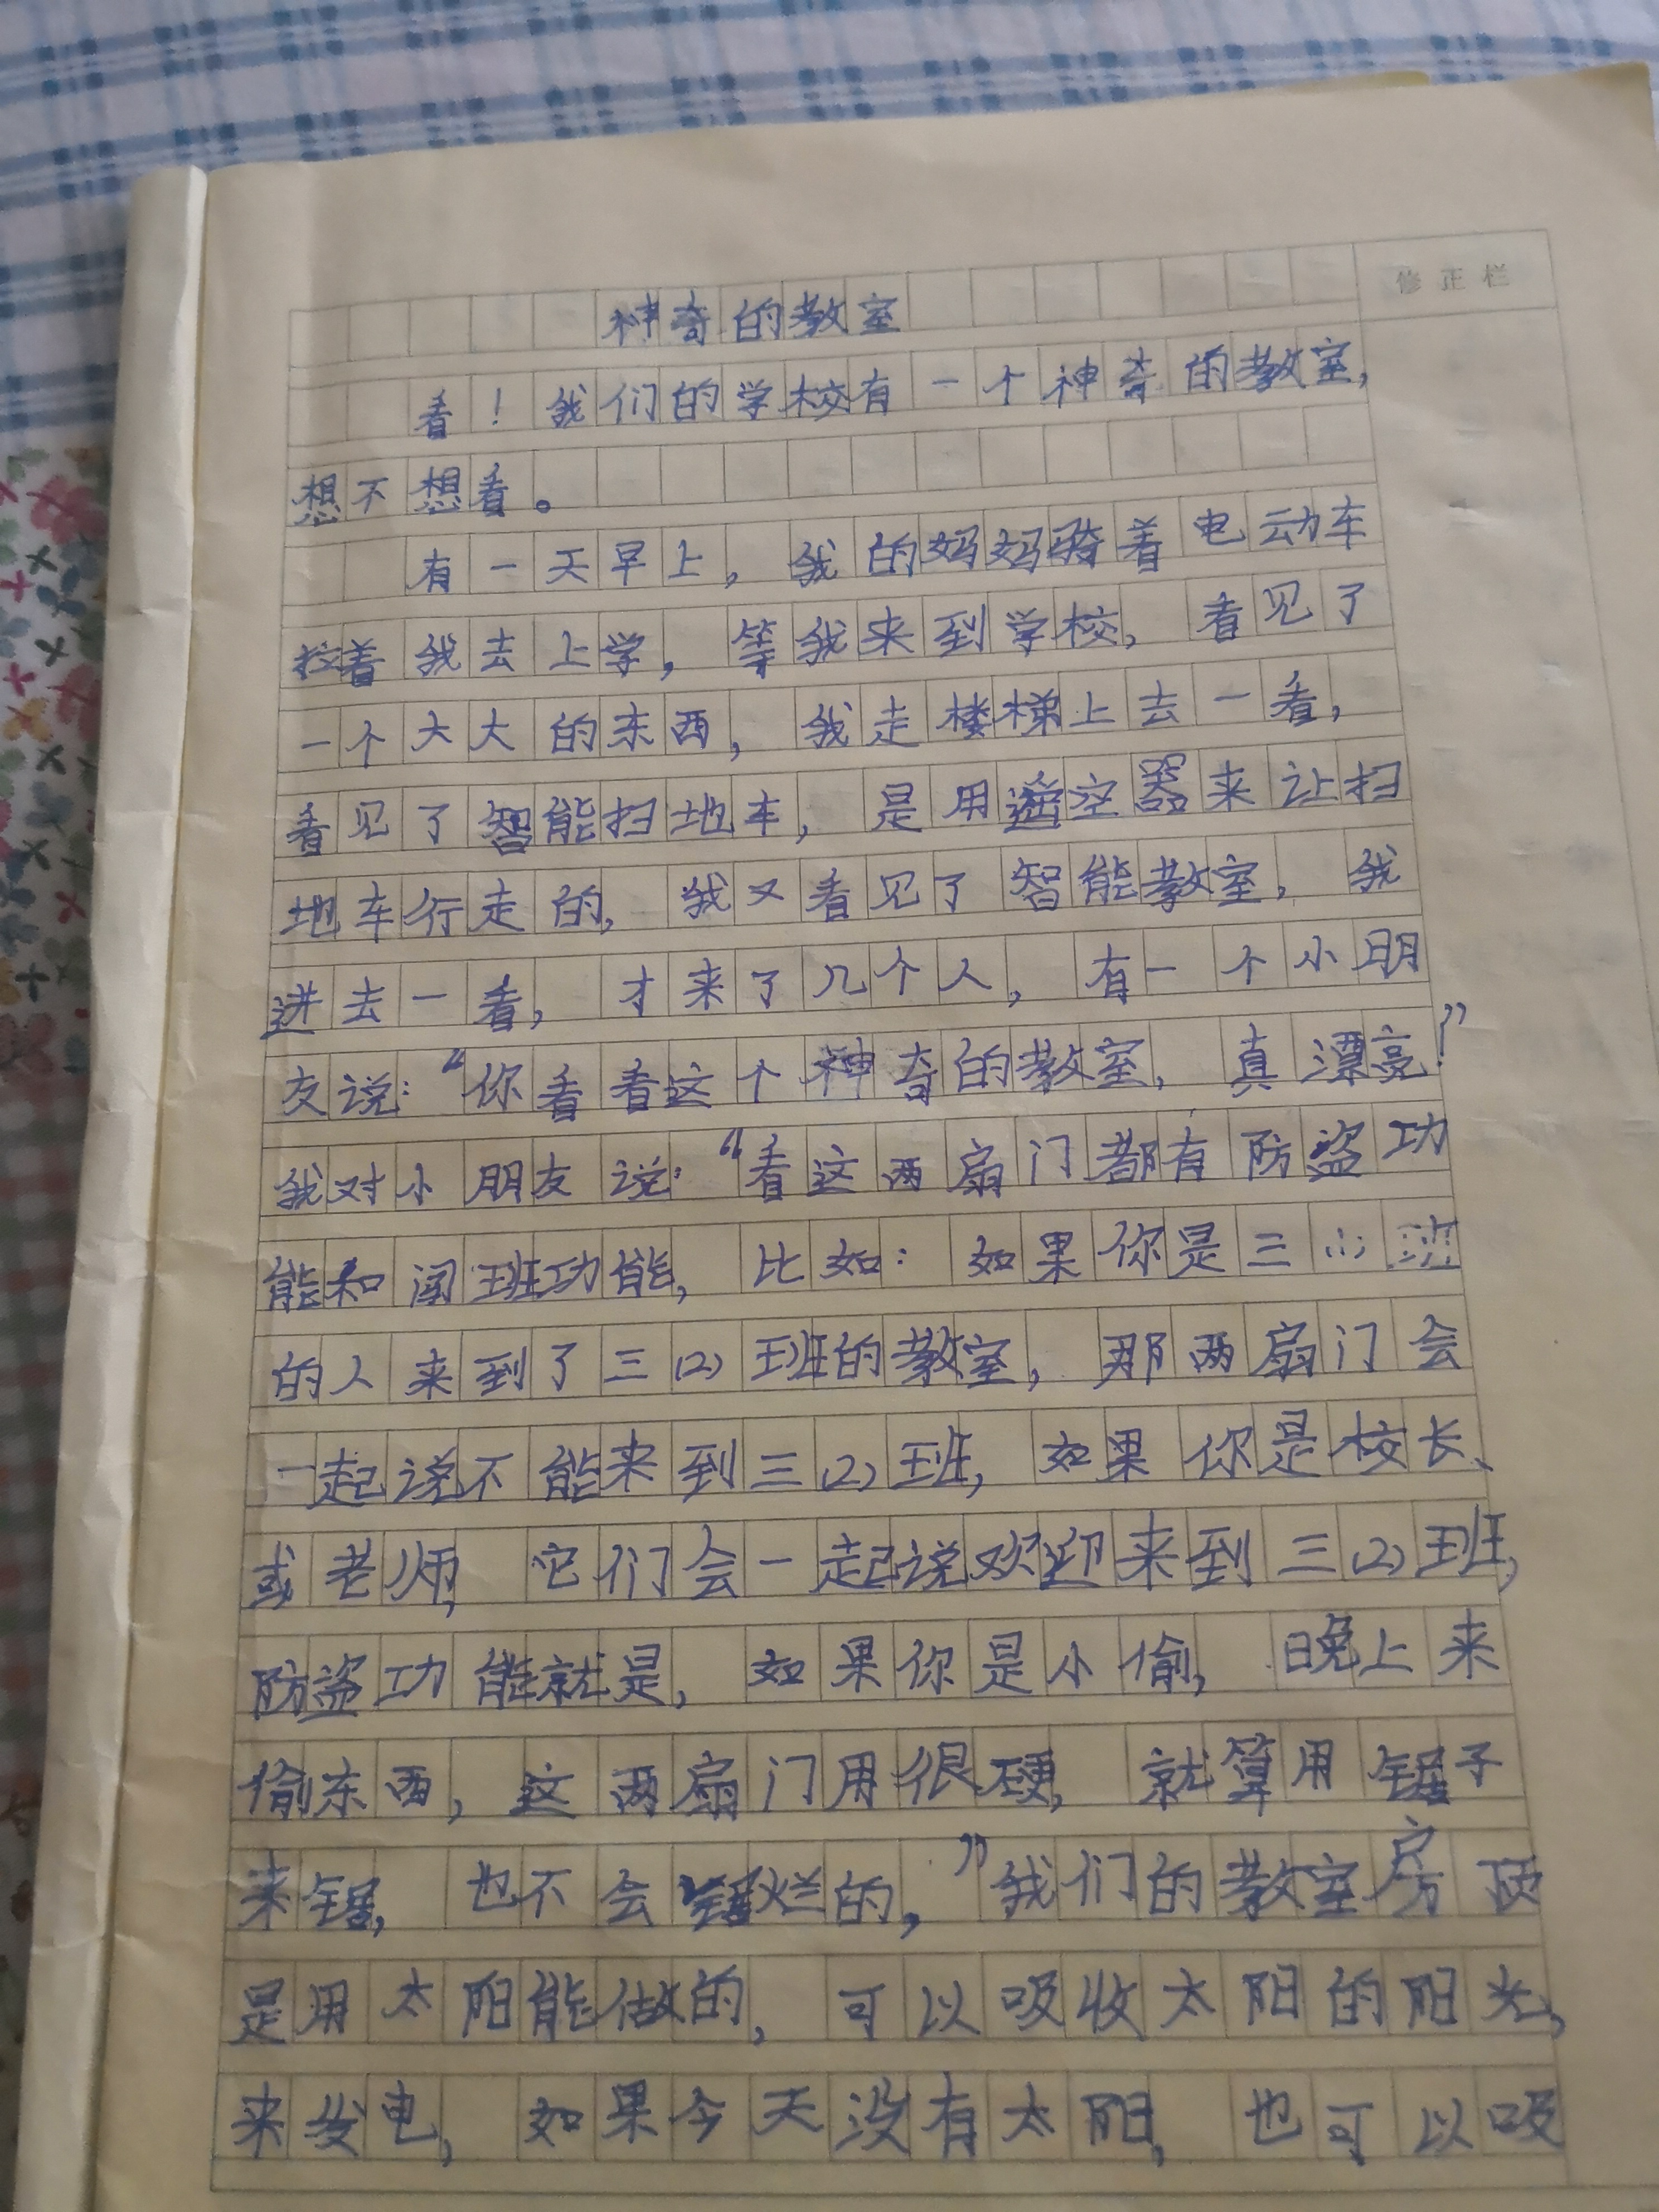 修正栏
神奇的教室
看！我们的学校有一个神奇的教室，
想不想看。
有一天早上，我的妈妈骑着电动车
拉着我去上学，等我来到学校，看见了
一个大大的东西，我走楼梯上去一看，
看见了智能扫地车，是用遥空器来让扫
地车行走的，我又看见了智能教室，我
进去一看，才来了几个人，有一个小朋
友说：“你看看这个神奇的教室，真漂亮！”
我对小朋友说：“看这两扇门都有防盗功
能和闯班功能，比如：如果你是三(1)班
的人来到了三(2)班的教室，那两扇门会
一起说不能来到三(2)班，如果你是校长、
或老师，它们会一起说欢迎来到三(2)班，
防盗功能就是，如果你是小偷，晚上来
偷东西，这两扇门用很硬，就算用锯子
来锯，也不会锯烂的，”我们的教室房顶
是用太阳能做的，可以吸收太阳的阳光，
来发电，如果今天没有太阳，也可以吸